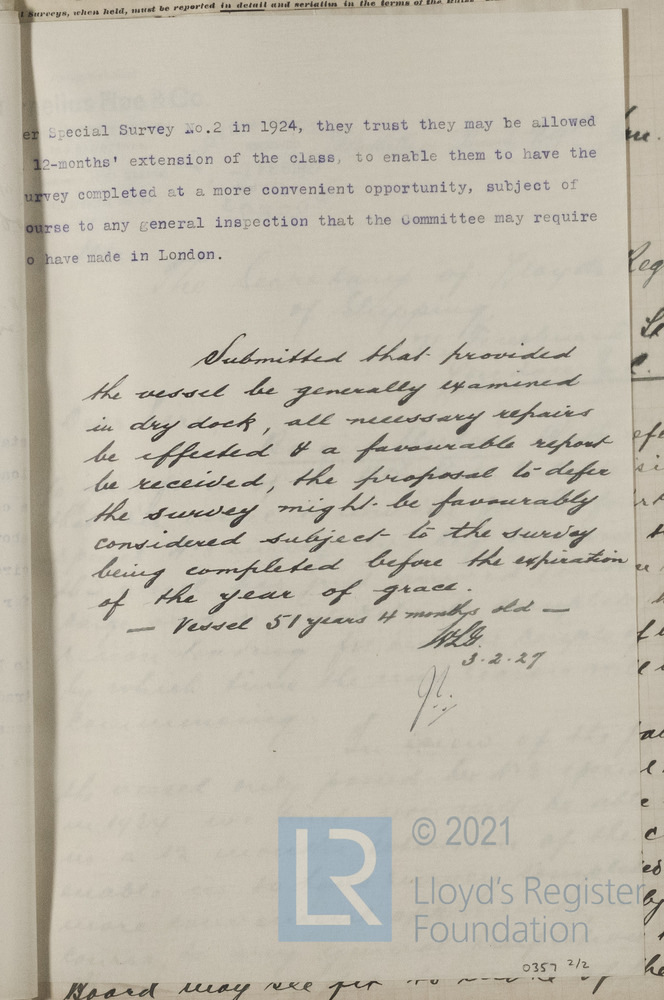 l Surveys, when held, must be reported in detail and seriatim in the terms of the Rules
er Special Survey No.2 in 1924, they trust they may be allowed
12-months' extension of the class, to enable them to have the
urvey completed at a more convenient opportunity, subject of
ourse to any general inspection that the Committee may require
o have made in London.
Submitted that provided
the vessel be generally examined
in dry dock, all necessary repairs
be effected & a favourable report
be received, the proposal to defer
the survey might be favourably
considered subject to the survey
being completed before the expiration
of the year of grace.
— Vessel 51 years 4 months old —
3.2.27
LR
© 2021
Lloyd's Register
Foundation
0357 2/2
Board may see fit to